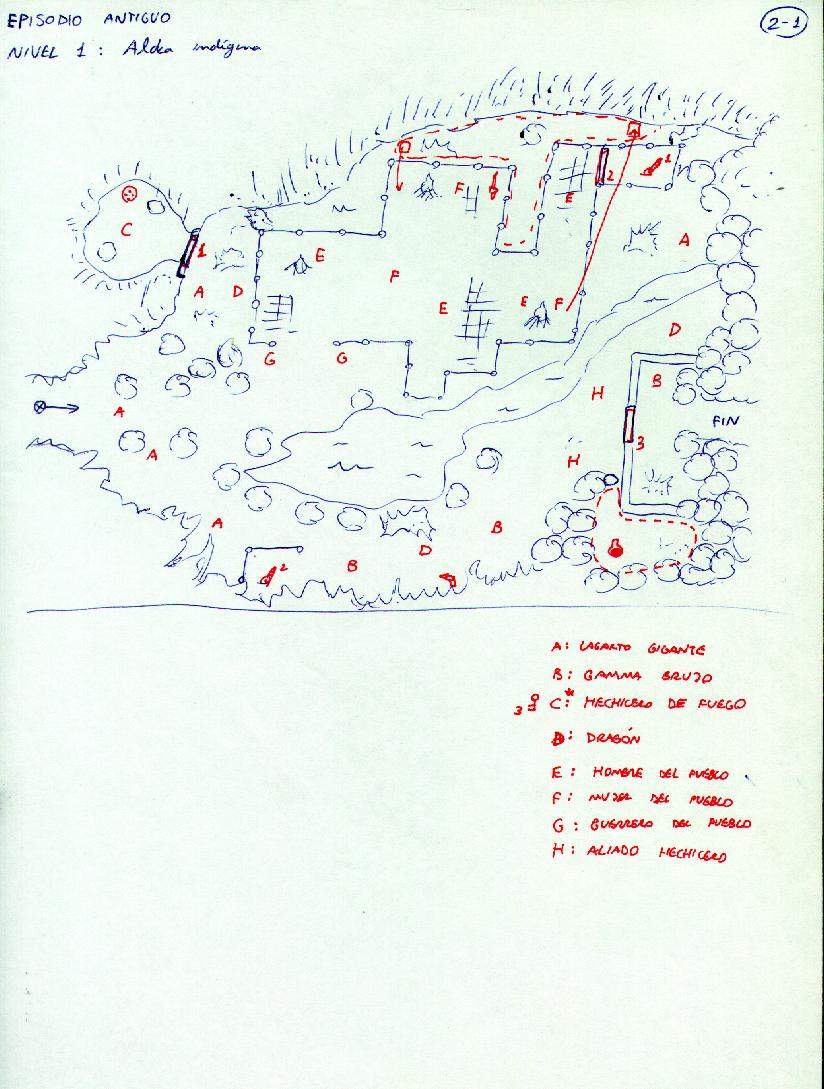 EPISODIO ANTIGUO
2-1
NIVEL 1 : Aldea indígena
1
2
F
E
C
1
E
A
A
D
F
E
E
F
D
G
G
B
A
H
FIN
3
A
H
A
B
D
B
2
A: LAGARTO GIGANTE
B: GAMMA BRUJO
3 C:* HECHICERO DE FUEGO
D: DRAGÓN
E: HOMBRE DEL PUEBLO
F: MUJER DEL PUEBLO
G: GUERRERO DEL PUEBLO
H: ALIADO HECHICERO